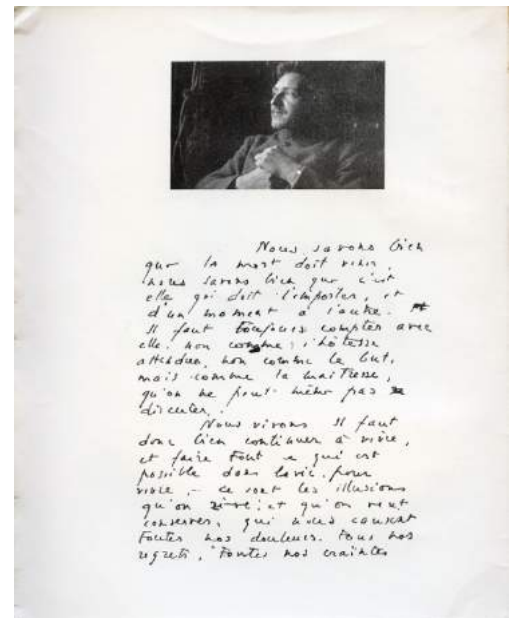 Nous savons bien
que la mort doit venir,
nous savons bien que c'est
elle qui doit l'emporter, et
d'un moment à l'autre.
Il faut toujours compter avec
elle. non comme l'hôtesse
attendue, non comme le but,
mais comme la maîtresse,
qu'on ne peut même pas
discuter.
Nous vivons Il faut
donc bien continuer à vivre,
et faire tout ce qui est
possible dans la vie, pour
vivre, - ce sont les illusions
qu'on et qu'on veut
conserver, qui nous causent
toutes nos douleurs. tous nos
regrets, toutes nos craintes